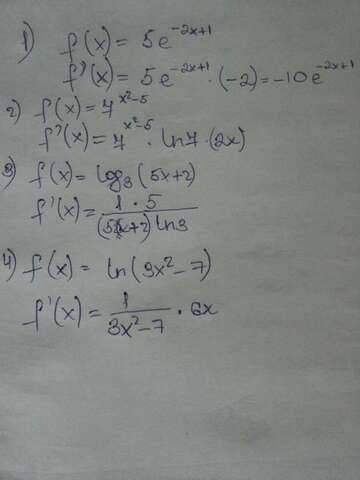 1) f(x) = 5e^(-2x+1)
f'(x) = 5e^(-2x+1) · (-2) = -10e^(-2x+1)
2) f(x) = 7^(x²-5)
f'(x) = 7^(x²-5) · ln7 · (2x)
3) f(x) = log₃(5x+2)
f'(x) = (1 · 5)/((5x+2) ln3)
4) f(x) = ln(3x²-7)
f'(x) = 1/(3x²-7) · 6x